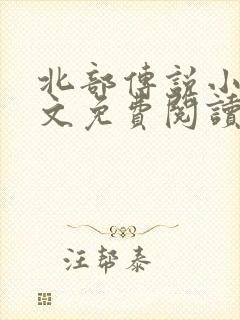 北部傳説小
文免費閱讀
汪幫泰